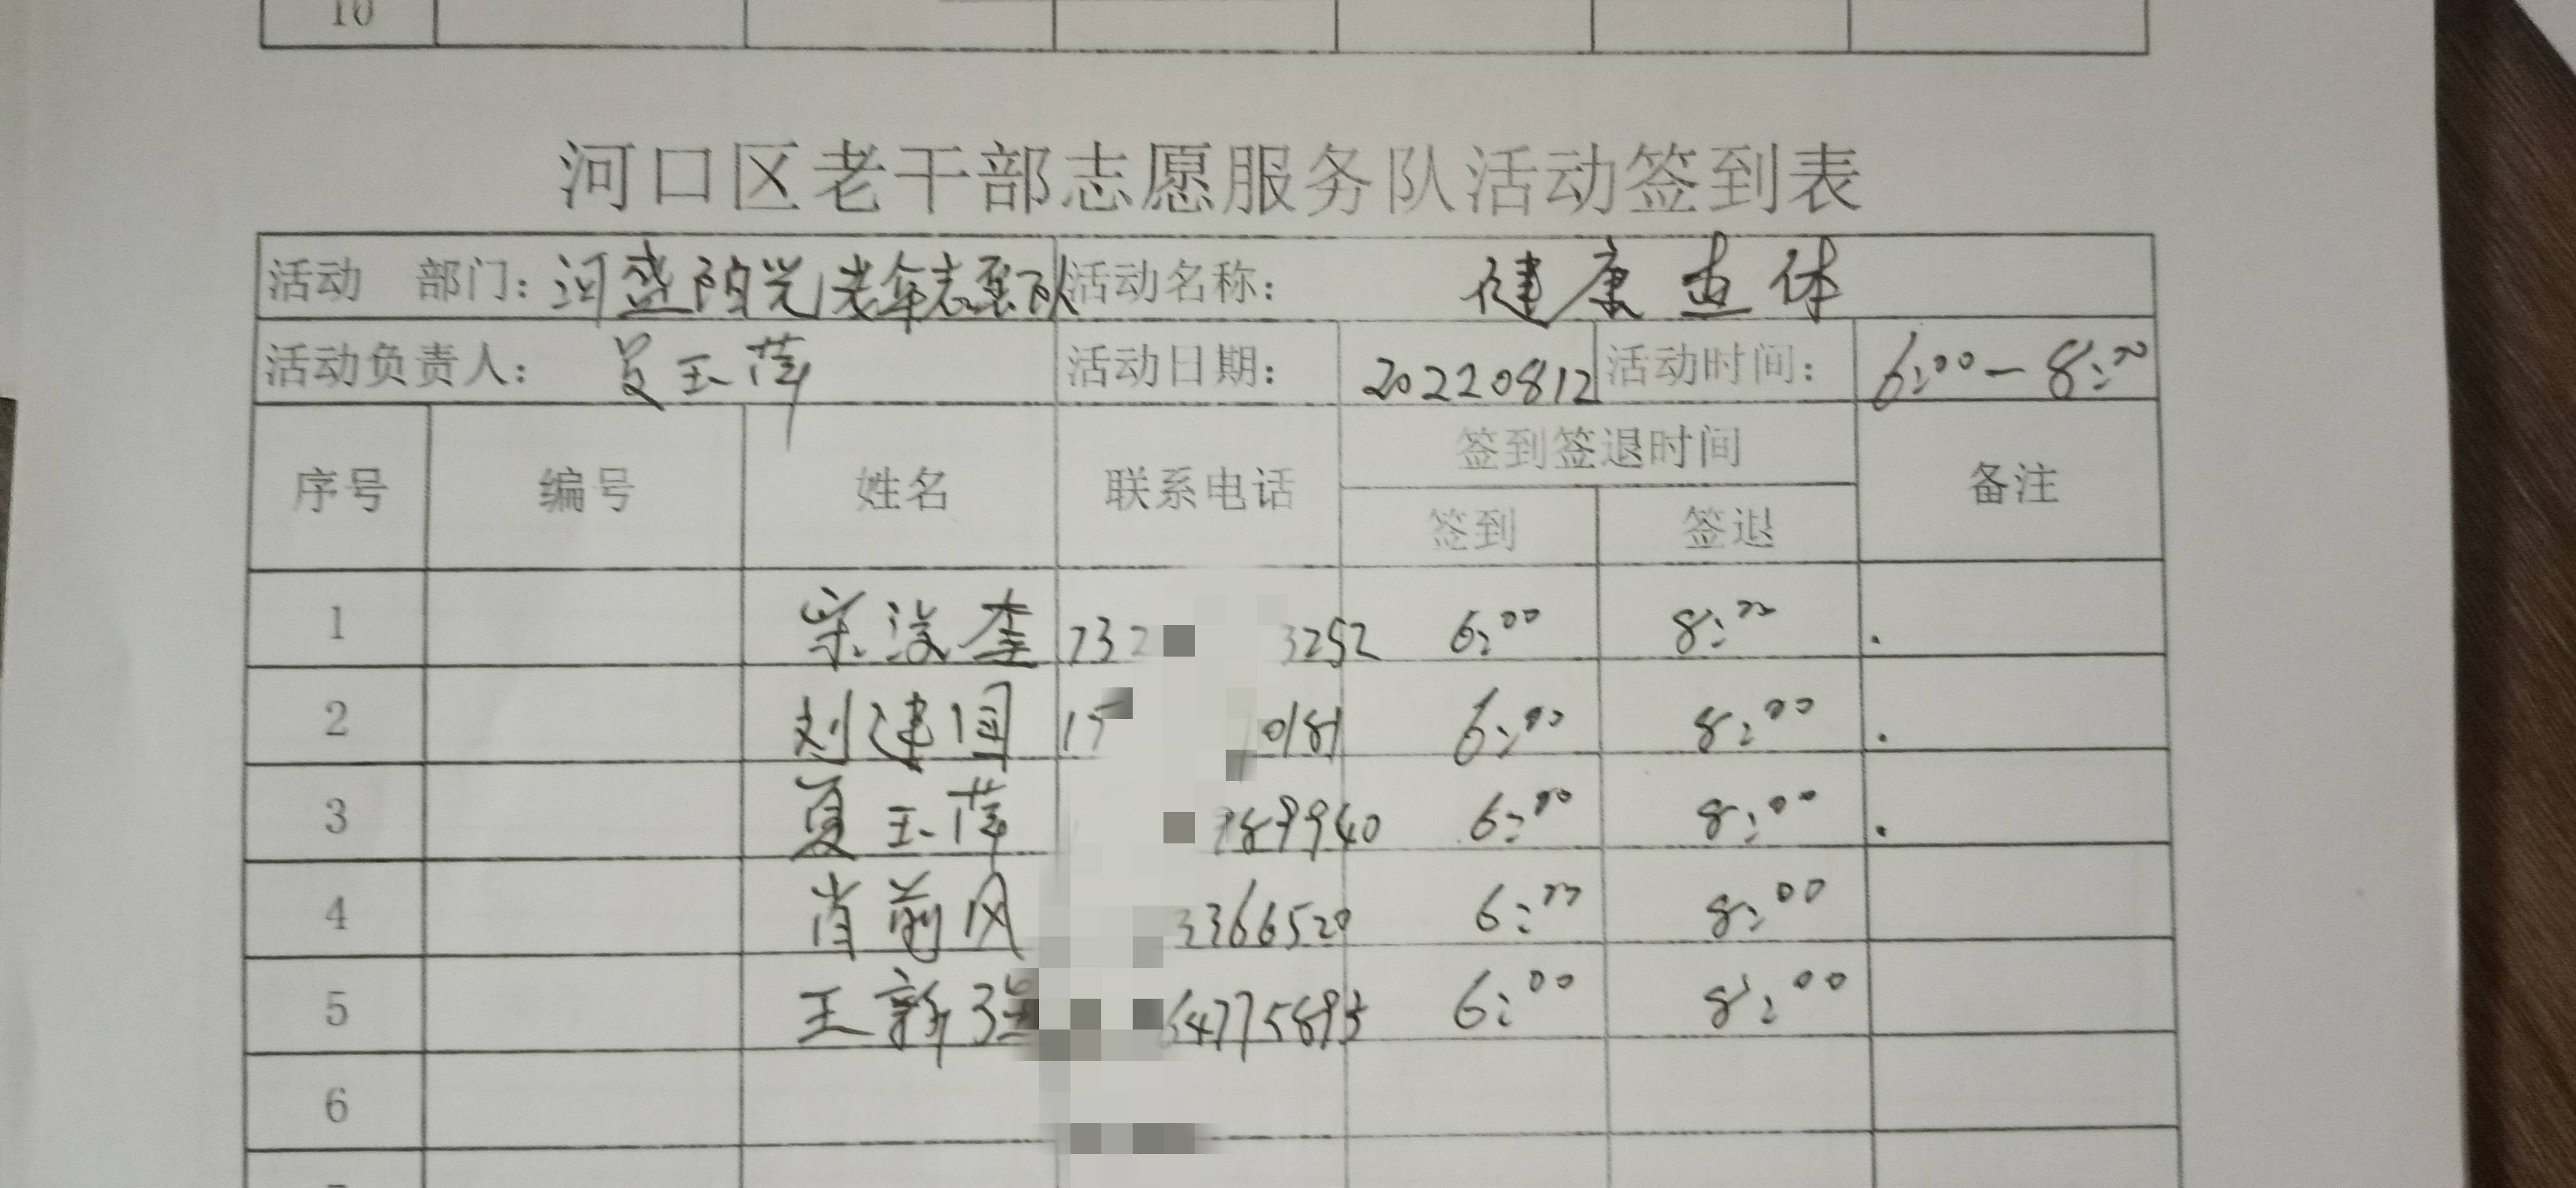 10
河口区老干部志愿服务队活动签到表
活动 部门: 河盛阳光老年志愿队 活动名称: 健康
活动负责人: 夏玉萍 活动日期: 20220812 活动时间: 6:00-8:00
序号 编号 姓名 联系电话 签到签退时间 备注
签到 签退
1 3252 6:00 8:00
2 刘建国 0181 6:00 8:00
3 夏玉萍 89940 6:00 8:00
4 肖 3366520 6:00 8:00
5 王新强 64775893 6:00 8:00
6